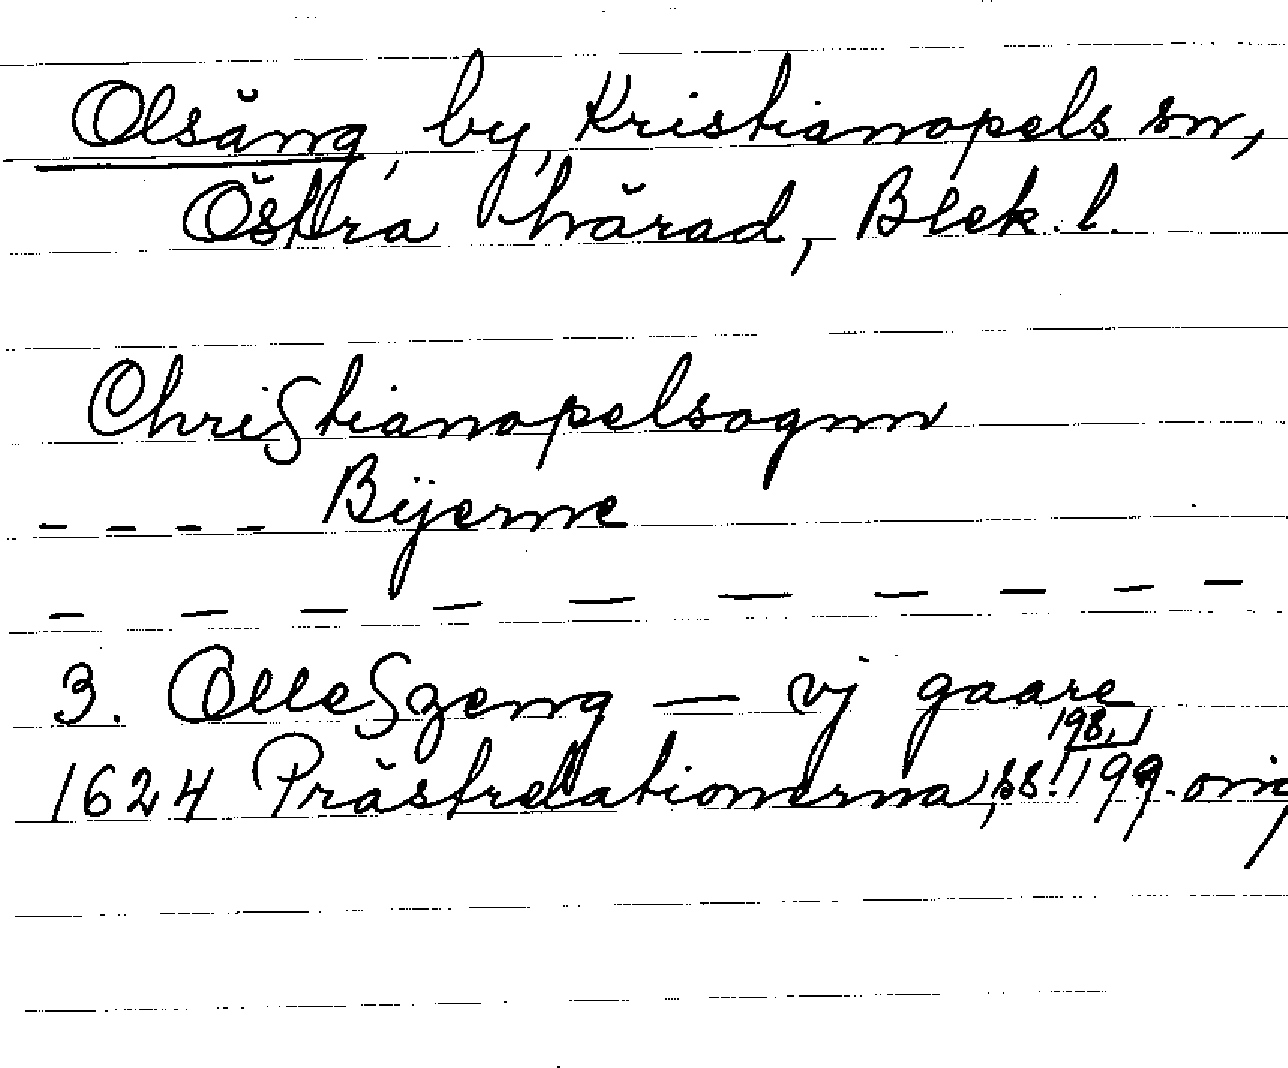 Olsäng, by, Kristianopels sn,
Östra härad, Blek. l.
Chriſtianopelsognn
- - - - Bÿerne
- - - - - - - - - -
3. Olleſzeng — vj gaare
1624 Prästrelationerna, ss. 198, 199. orig